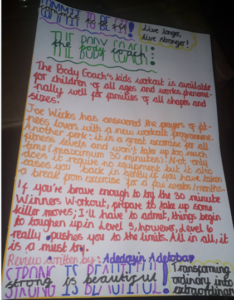 COMMIT TO BE FIT!
Live longer,
live stronger!
THE BODY COACH:
the body coach:
The Body Coach's kids workout is available
for children of all ages and works phenome-
nally well for families of all shapes and
sizes.
Joe Wicks has answered the prayers of fit-
ness lovers with a new workout programme.
Another perk: it is a great exercise for all
fitness levels and won't take up too much
time (maximum 30 minutes). Not only
does it require no equipment but it also
eases you back in lightly if you have taken
a break from exercise for a few weeks/months.
If you're brave enough to try the 30 minute
Winners Workout, prepare to take up some
killer moves; I'll have to admit, things begin
to toughen up in Level 5, however, Level 6
really pushes you to the limits. All in all, it
is a must try.
Review written by: Adedayin Adetoban
STRONG IS BEAUTIFUL!
strong is beautiful
Transforming
ordinary into
extraordinary